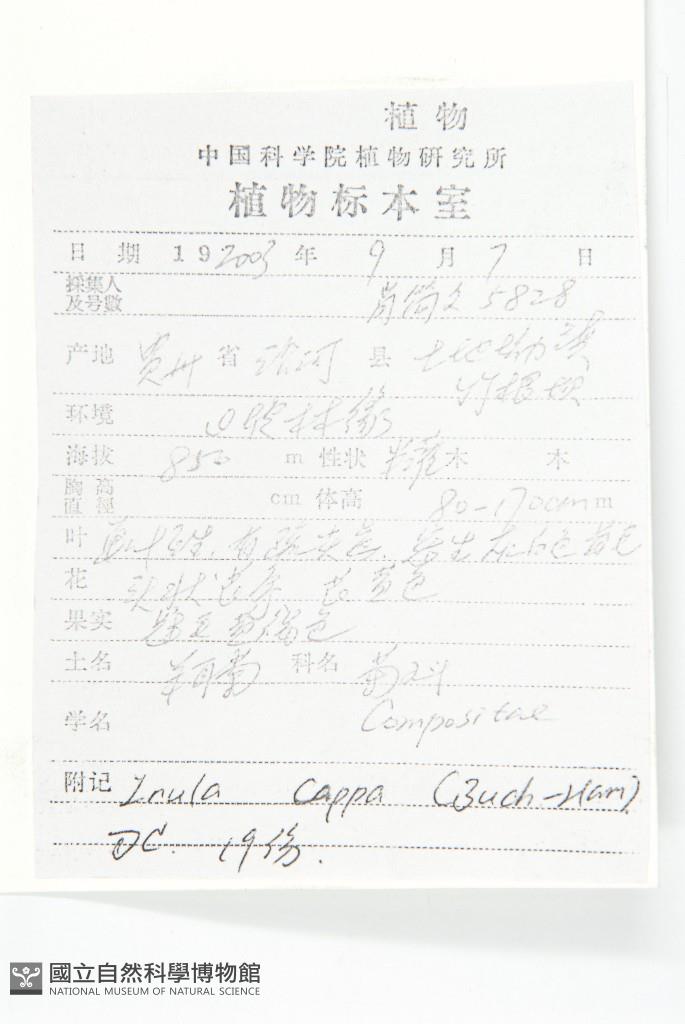 植物
中国科学院植物研究所
植物标本室
日期 192003年 9月 7日
採集人及号數 肖简文 5828
产地 贵州省 沿河县
竹根坝
环境 林缘
海拔 850 m 性状 半灌木 木
胸高直徑 cm 体高 80-170cm m
叶 单叶互生,
花 头状花序 花黄色
果实 色
土名 羊耳菊 科名 菊科
学名 Compositae
附记 Inula Cappa (Buch-Ham)
DC. 19份.
國立自然科學博物館
NATIONAL MUSEUM OF NATURAL SCIENCE